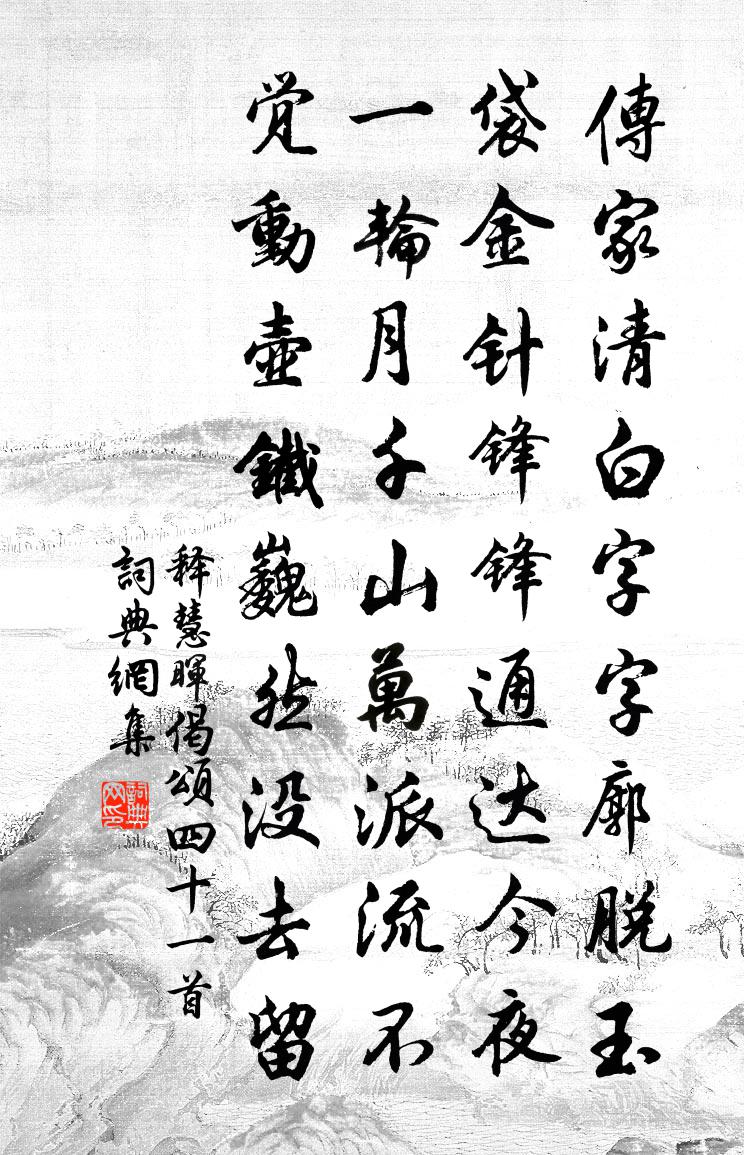 傳家清白字字廓脱玉
袋金针锋锋通达今夜
一輪月千山萬派流不
觉動壺鐵巍然没去留
释慧暉偈頌四十一首
詞典網集
詞典网印